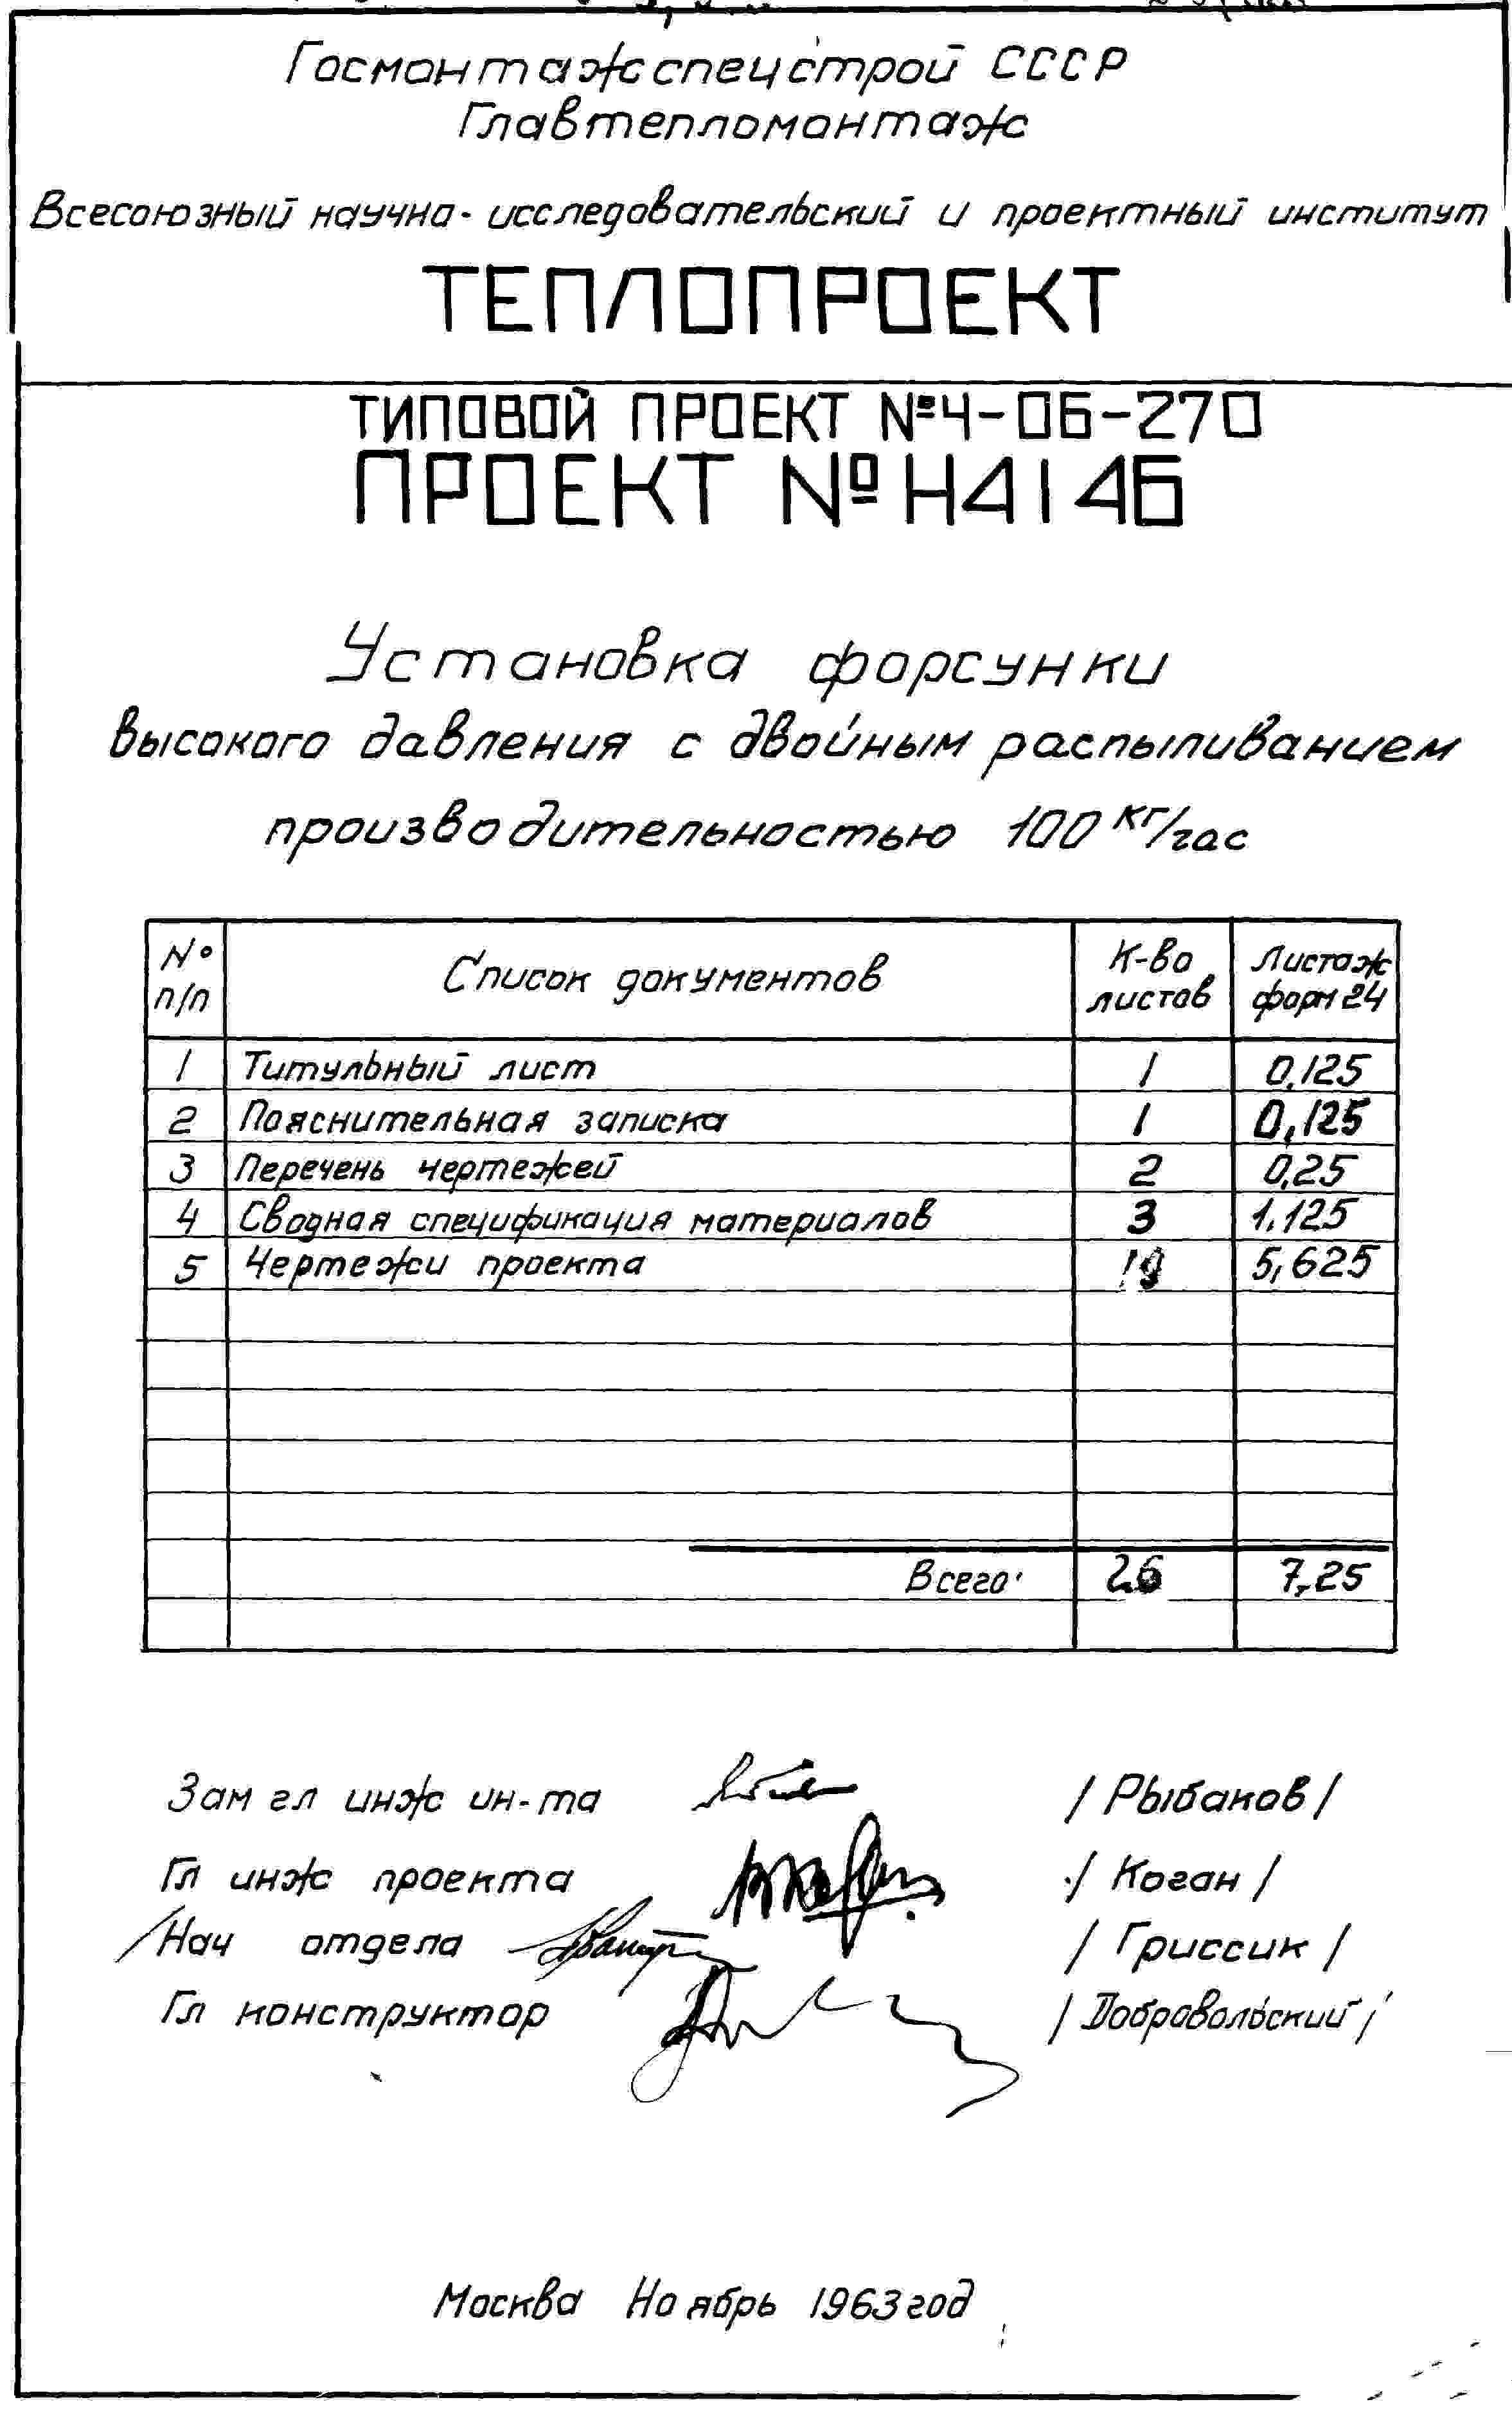 Госмонтажспецстрой СССР
Главтепломонтаж
Всесоюзный научно-исследовательский и проектный институт
ТЕПЛОПРОЕКТ
ТИПОВОЙ ПРОЕКТ №4-06-270
ПРОЕКТ №Н4146
Установка форсунки
высокого давления с двойным распыливанием
производительностью 100 кг/час
№ п/п Список документов К-во листов Листаж форм 24
1 Титульный лист 1 0,125
2 Пояснительная записка 1 0,125
3 Перечень чертежей 2 0,25
4 Сводная спецификация материалов 3 1,125
5 Чертежи проекта 19 5,625
Всего: 26 7,25
Зам гл инж ин-та /Рыбаков/
Гл инж проекта /Коган/
Нач отдела /Гриссик/
Гл конструктор /Добровольский/
Москва Ноябрь 1963 год